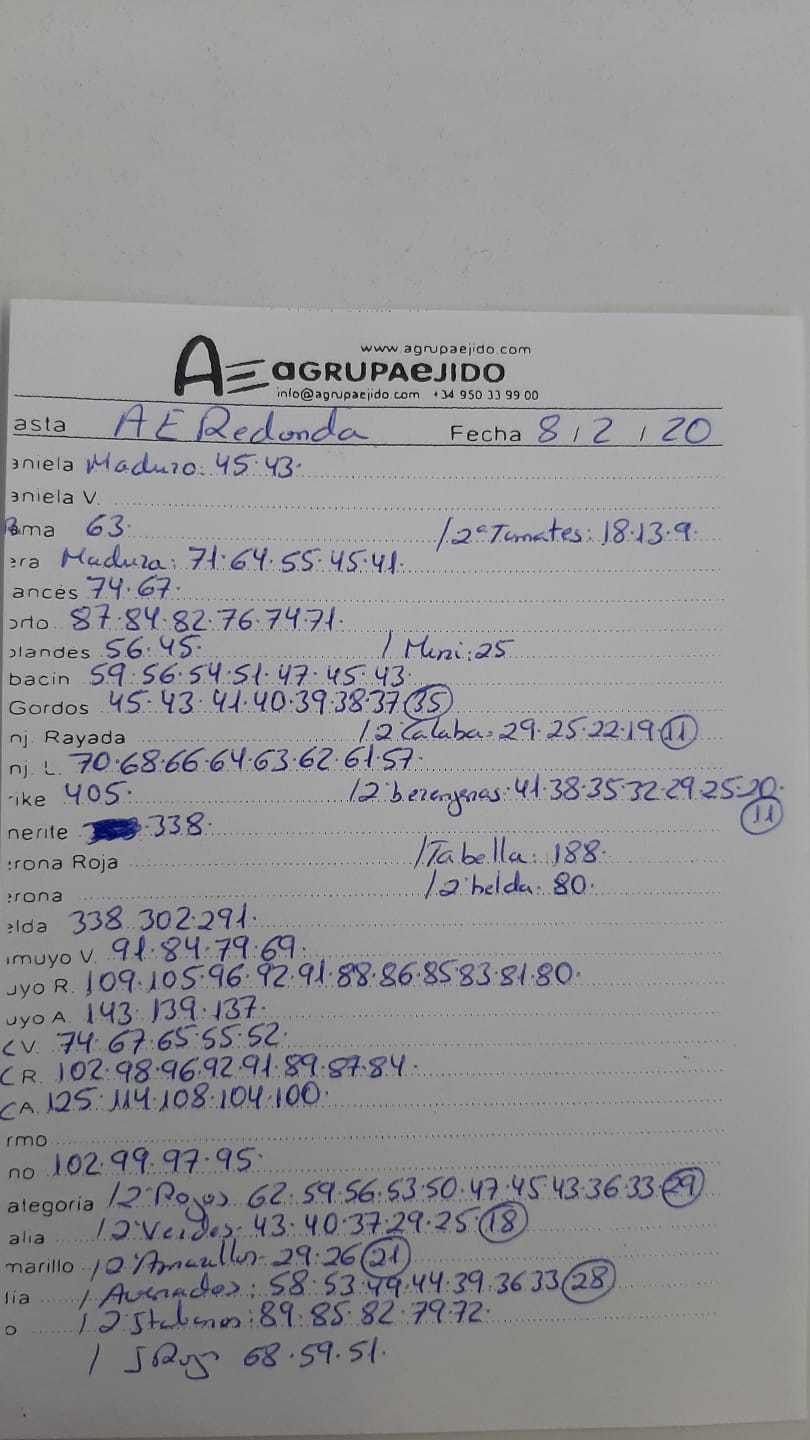 www.agrupaejido.com
AE aGRUPAeJIDO
info@agrupaejido.com +34 950 33 99 00
asta AE Redonda Fecha 8 / 2 / 20
aniela Maduro: 45·43·
aniela V.
ama 63· / 2ª Tomates: 18·13·9·
era Madura: 71·64·55·45·41·
ancés 74·67·
orto 87·84·82·76·74·71·
olandés 56·45· / Mini: 25
bacin 59·56·54·51·47·45·43·
Gordos 45·43·41·40·39·38·37 35
nj. Rayada / 2ª Calaba: 29·25·22·19· 11
nj. L. 70·68·66·64·63·62·61·57·
rike 405· / 2ª berenjenas: 41·38·35·32·29·25·20·
nerite 338· 11
erona Roja / Tabella: 188·
erona / 2ª helda: 80·
elda 338·302·291·
muyo V. 91·84·79·69·
uyo R. 109·105·96·92·91·88·86·85·83·81·80·
uyo A. 143·139·137·
C V. 74·67·65·55·52·
C R. 102·98·96·92·91·89·87·84·
C A. 125·114·108·104·100·
rmo
no 102·99·97·95·
ategoría / 2ª Rojos 62·59·56·53·50·47·45·43·36·33· 29
alia / 2ª Verdes: 43·40·37·29·25· 18
marillo / 2ª Amarillos: 29·26 21
lia / Asurados: 58·53·49·44·39·36·33 28
o / 2ª Italianos: 89·85·82·79·72·
/ I Rojo 68·59·51·